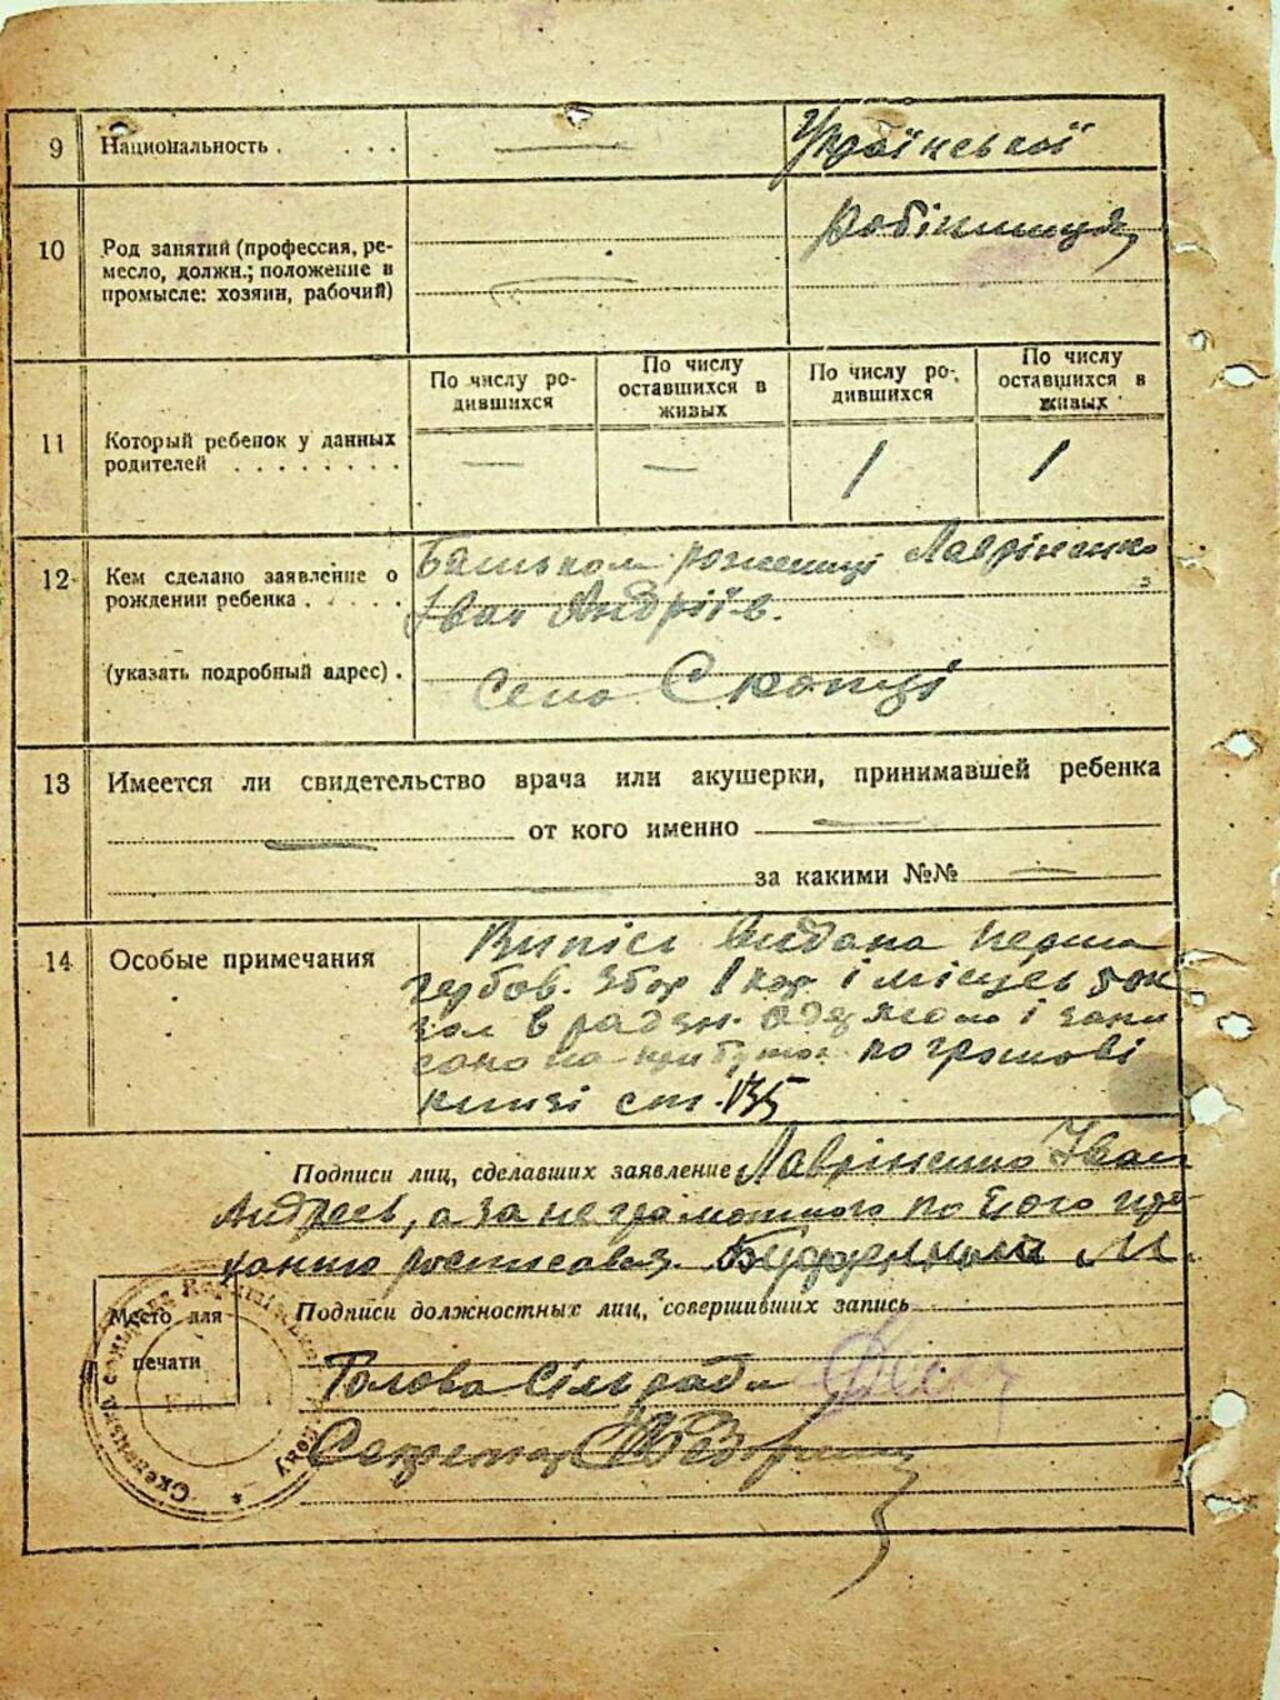 9 Национальность . . . . — Української
10 Род занятий (профессия, ре-
месло, должн.; положение в
промысле: хозяин, рабочий) — робітниця
По числу ро-
дившихся
По числу
оставшихся в
живых
По числу ро-
дившихся
По числу
оставшихся в
живых
11 Который ребенок у данных
родителей . . . . . . . . — — 1 1
12 Кем сделано заявление о
рождении ребенка . . . . .
Батьком рожениці Лавріненко
Іван Андріїв.
(указать подробный адрес) .
село Скопці
13 Имеется ли свидетельство врача или акушерки, принимавшей ребенка
— от кого именно —
за какими №№ —
14 Особые примечания
Випісь видана перша
гербов. збор 1 кар і місцев 50к
і запи
сано на по грошові
книзі ст. 135
Подписи лиц, сделавших заявление Лавріненко Іван
Андреев, а за неграмотного по його про
ханню росписався М.
Место для
печати
Подписи должностных лиц, совершивших запись
Голова сільради
Секретар